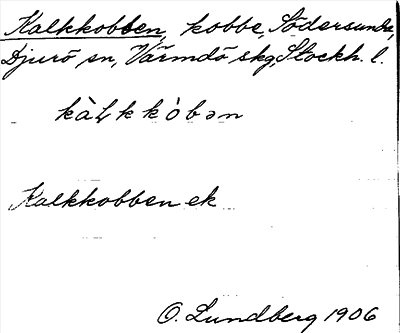 Kalkkobben, kobbe, Södersunda,
Djurö sn, Värmdö skg, Stockh. l.
kàⱠkkȯ̀bən
Kalkkobben ek
O. Lundberg 1906